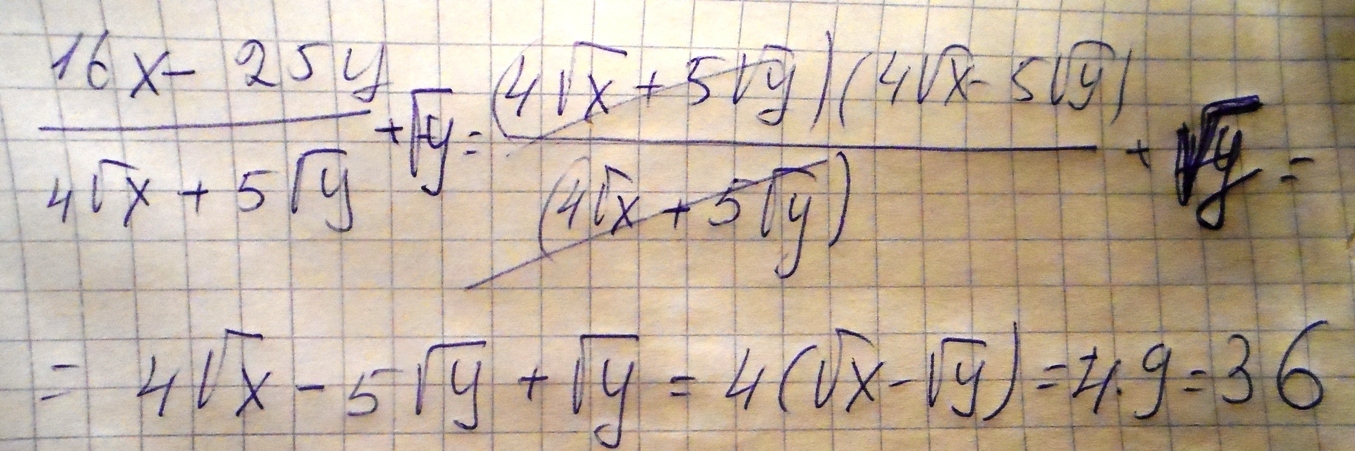 (16x - 25y)/(4√x + 5√y) + √y = ((4√x + 5√y)(4√x - 5√y))/((4√x + 5√y)) + √y =
= 4√x - 5√y + √y = 4(√x - √y) = 4·9 = 36